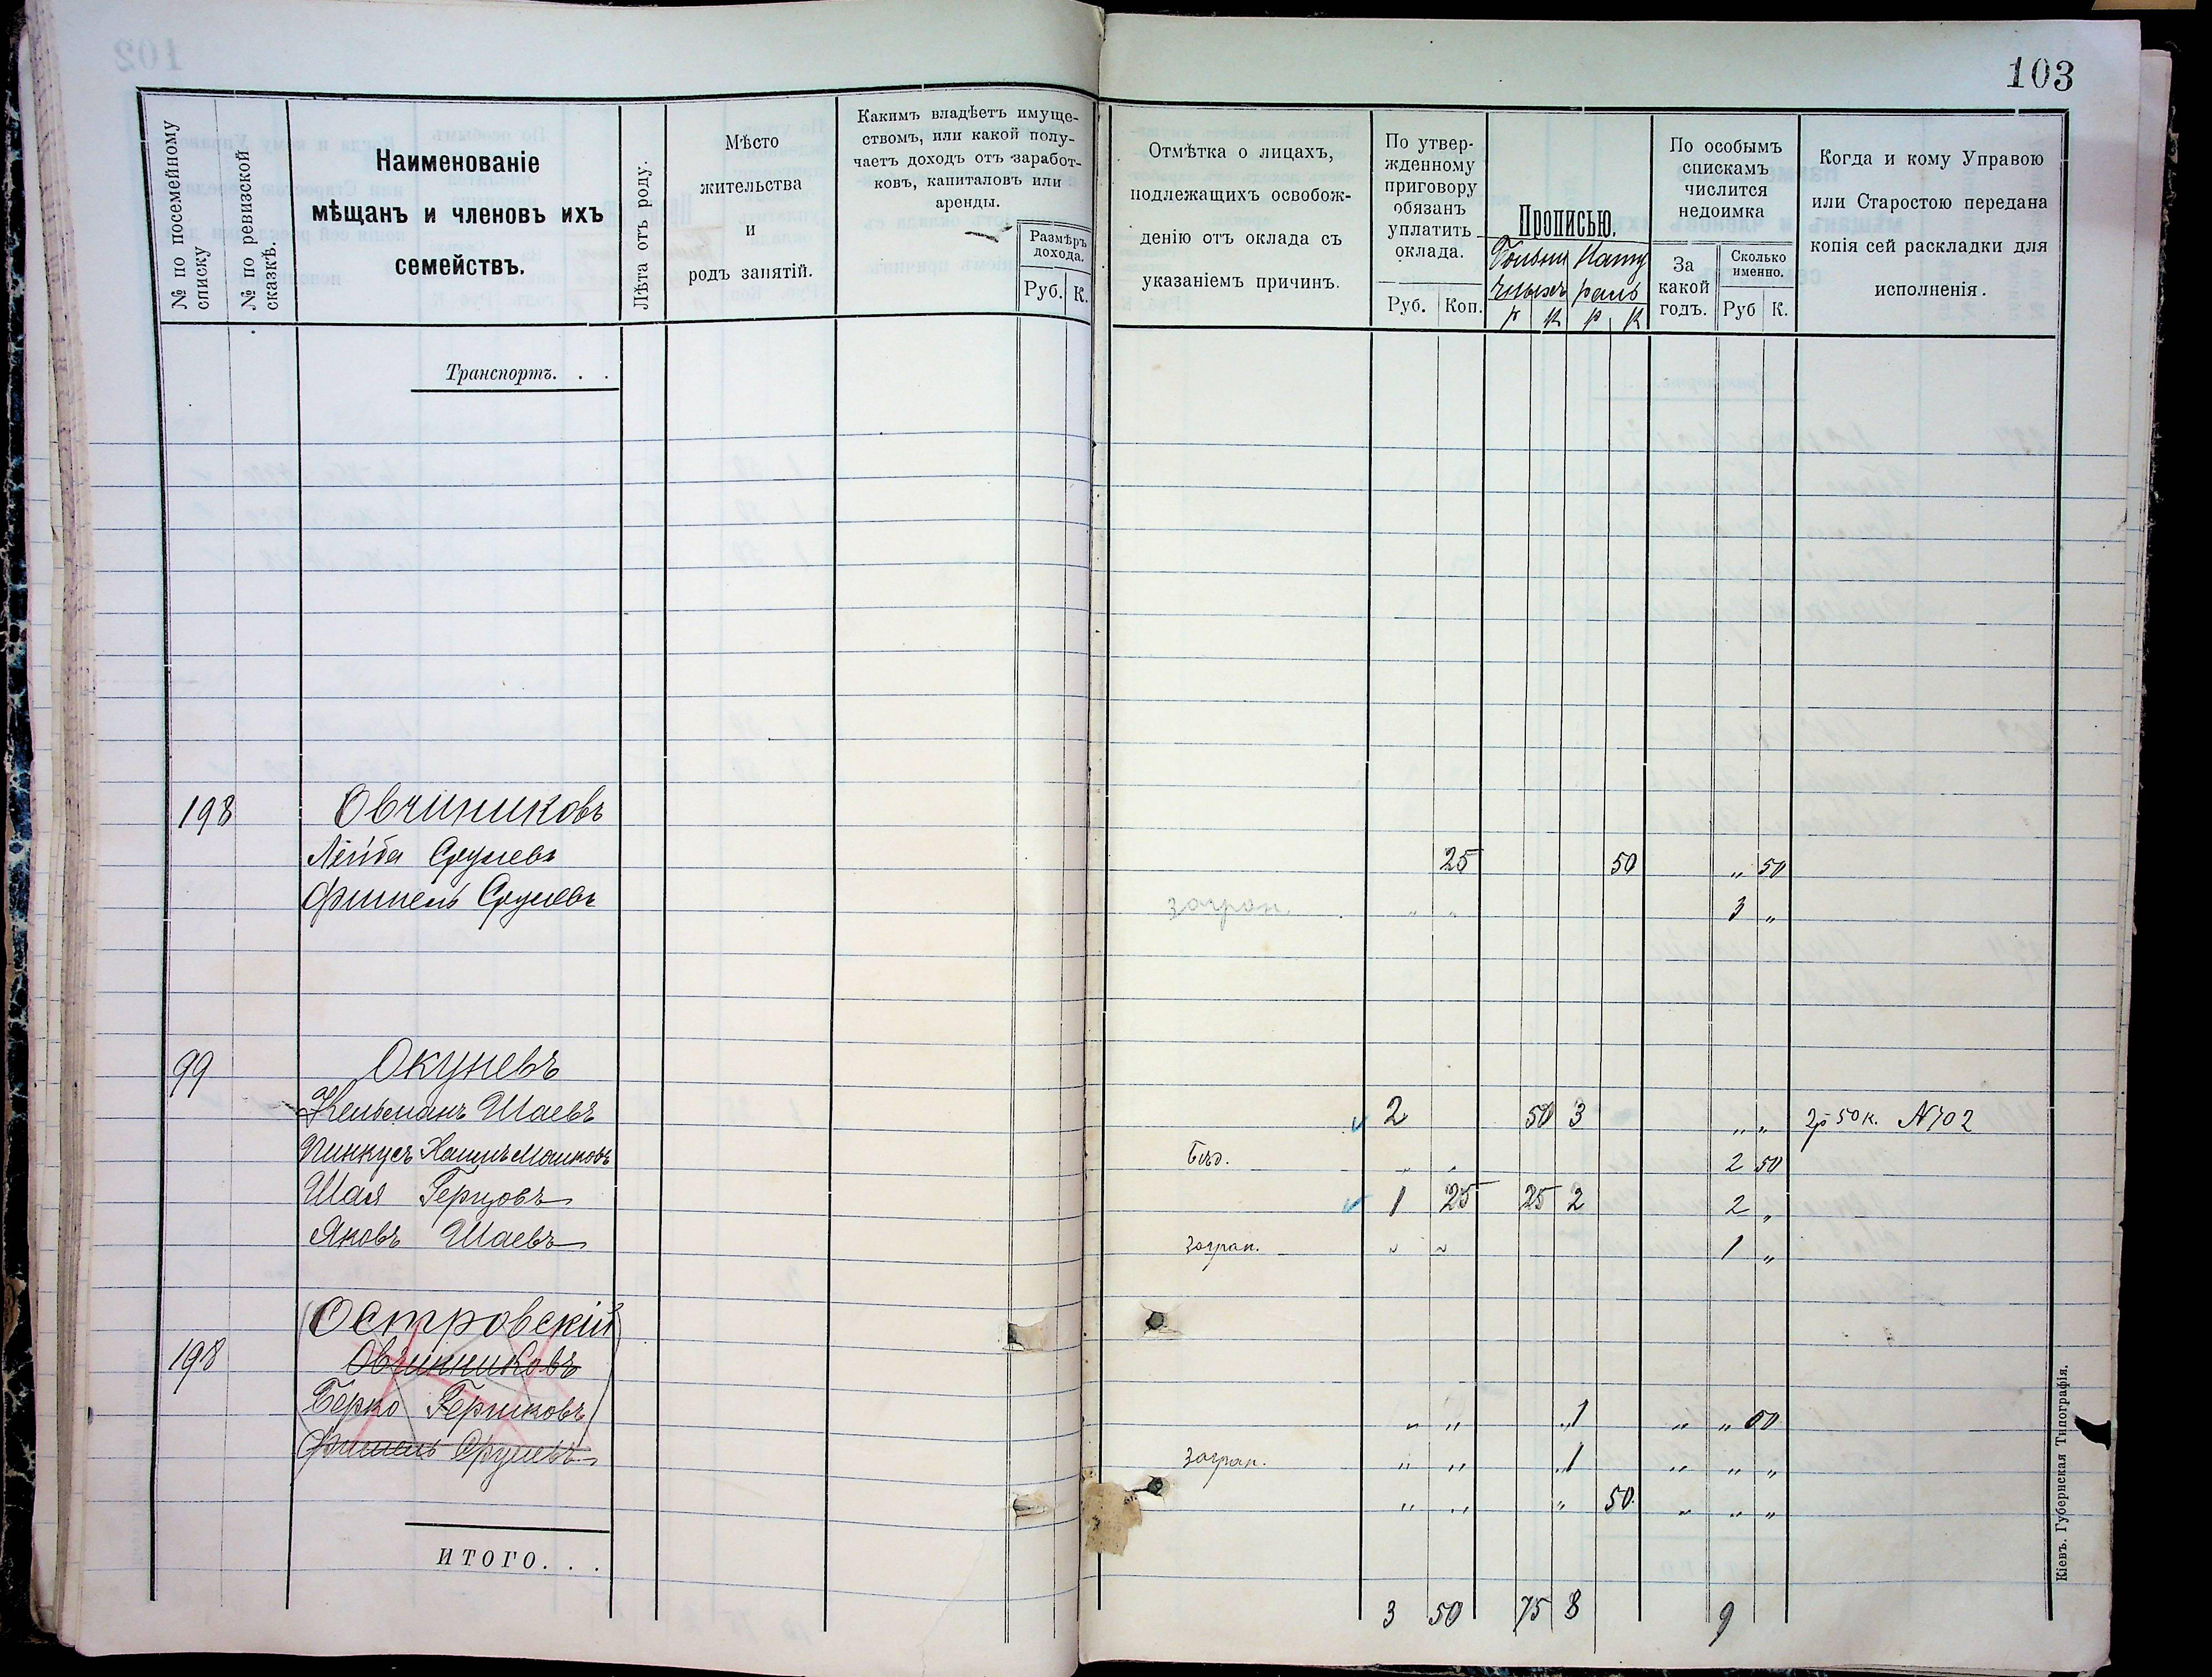 103
№ по посемейному списку
№ по ревизской сказкѣ.
Наименованіе
мѣщанъ и членовъ ихъ
семействъ.
Лѣта отъ роду.
Мѣсто
жительства
и
родъ занятій.
Какимъ владѣетъ имуще-
ствомъ, или какой полу-
чаетъ доходъ отъ заработ-
ковъ, капиталовъ или
аренды.
Размѣръ
дохода.
Руб. К.
Отмѣтка о лицахъ,
подлежащихъ освобож-
денію отъ оклада съ
указаніемъ причинъ.
По утвер-
жденному
приговору
обязанъ
уплатить
оклада.
Руб. Коп.
Прописью.
р к р к
По особымъ
спискамъ
числится
недоимка
За
какой
годъ.
Сколько
именно.
Руб К.
Когда и кому Управою
или Старостою передана
копія сей раскладки для
исполненія.
Транспортъ. . .
198 Овчиниковъ
Лейба Срулевъ 25 50 „ 50
Фишель Срулевъ загран. „ „ 3 „
99 Окуневъ
Кельманъ Шаевъ 2 50 3 „ „ 2р 50к. №702
Пинкусъ Хаимъ Мошковъ Бѣд. „ „ 2 50
Шая Герцовъ 1 25 25 2 2 „
Яковъ Шаевъ загран. „ „ 1 „
Островскій
198 Овчинниковъ
Берко Гершковъ „ „ „ 1 „ „ 50
Фишель Срулевъ загран. „ „ „ 1 „ „ „
„ „ „ 50. „ „ „
ИТОГО. . .
3 50 75 8 9
Кіевъ. Губернская Типографія.